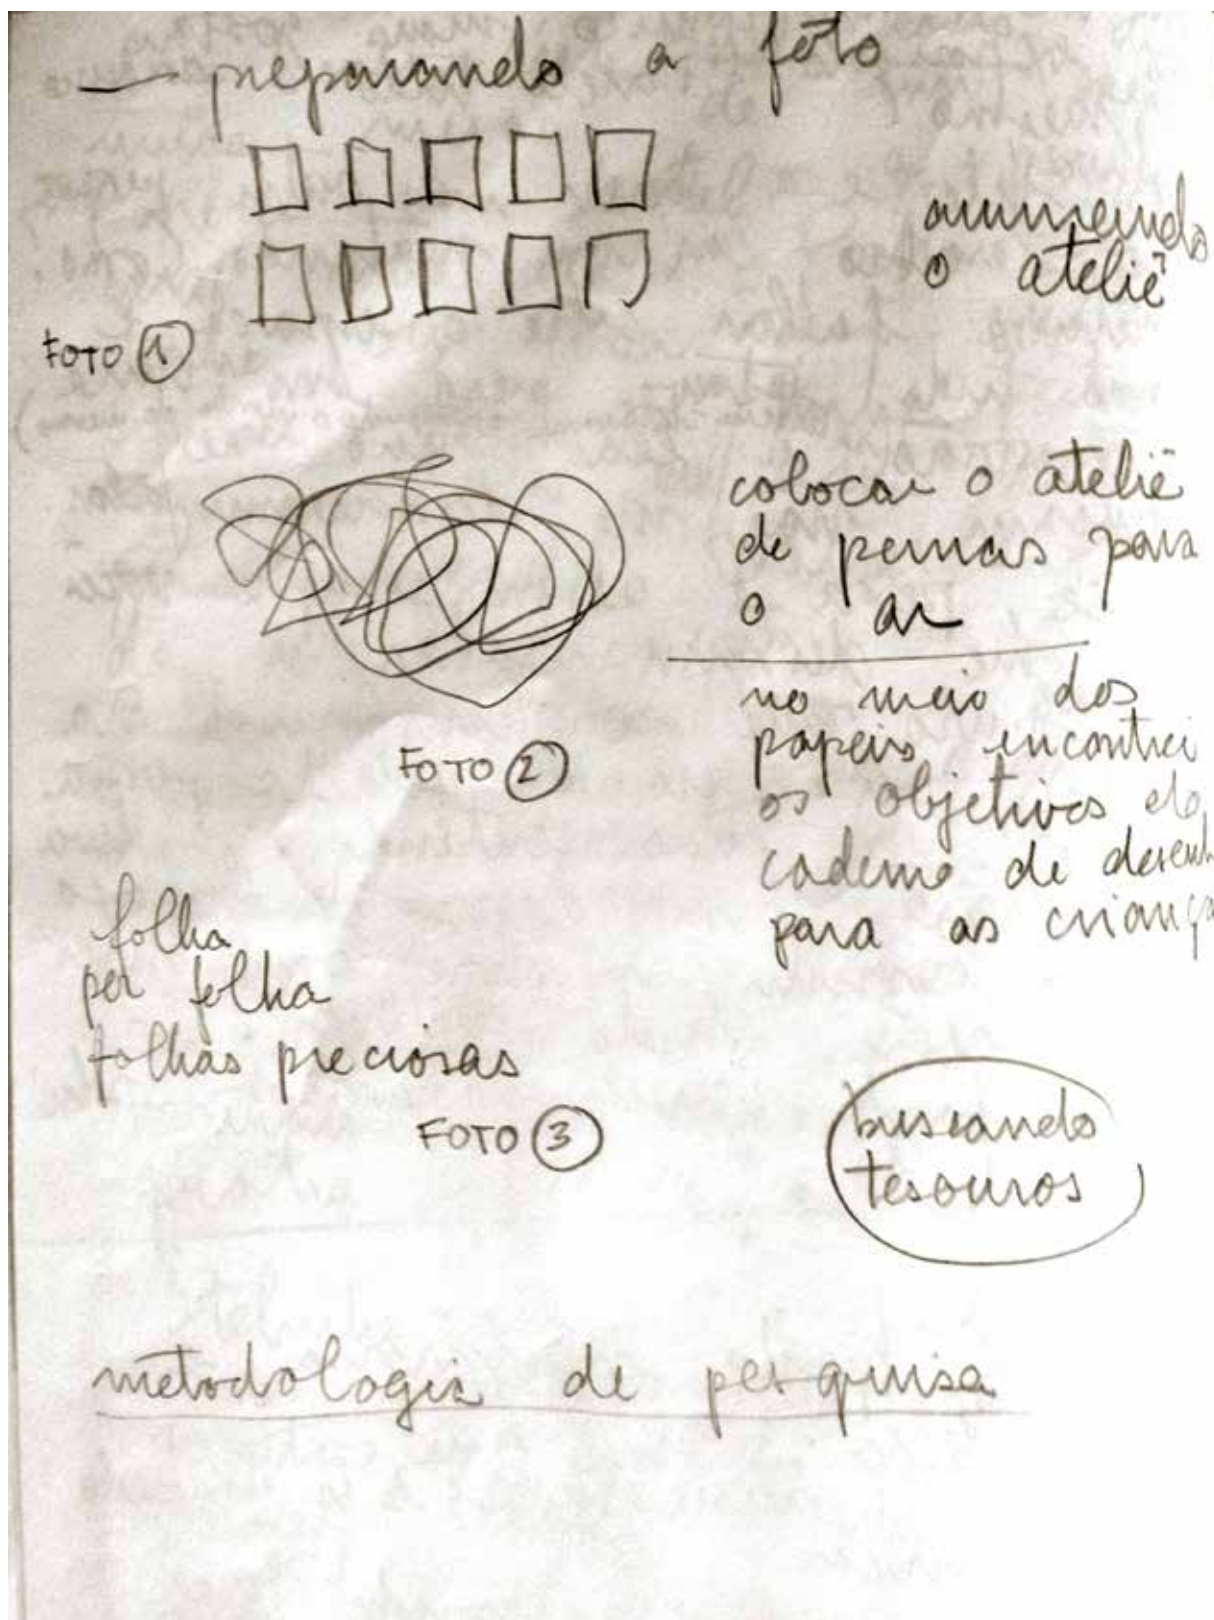 — preparando a foto
arrumando
o ateliê
FOTO 1
colocar o ateliê
de pernas para
o ar
no meio dos
papeis encontrei
os objetivos do
caderno de desenh
para as criança
FOTO 2
folha
por folha
folhas preciosas
FOTO 3
buscando
tesouros
metodologia de pesquisa